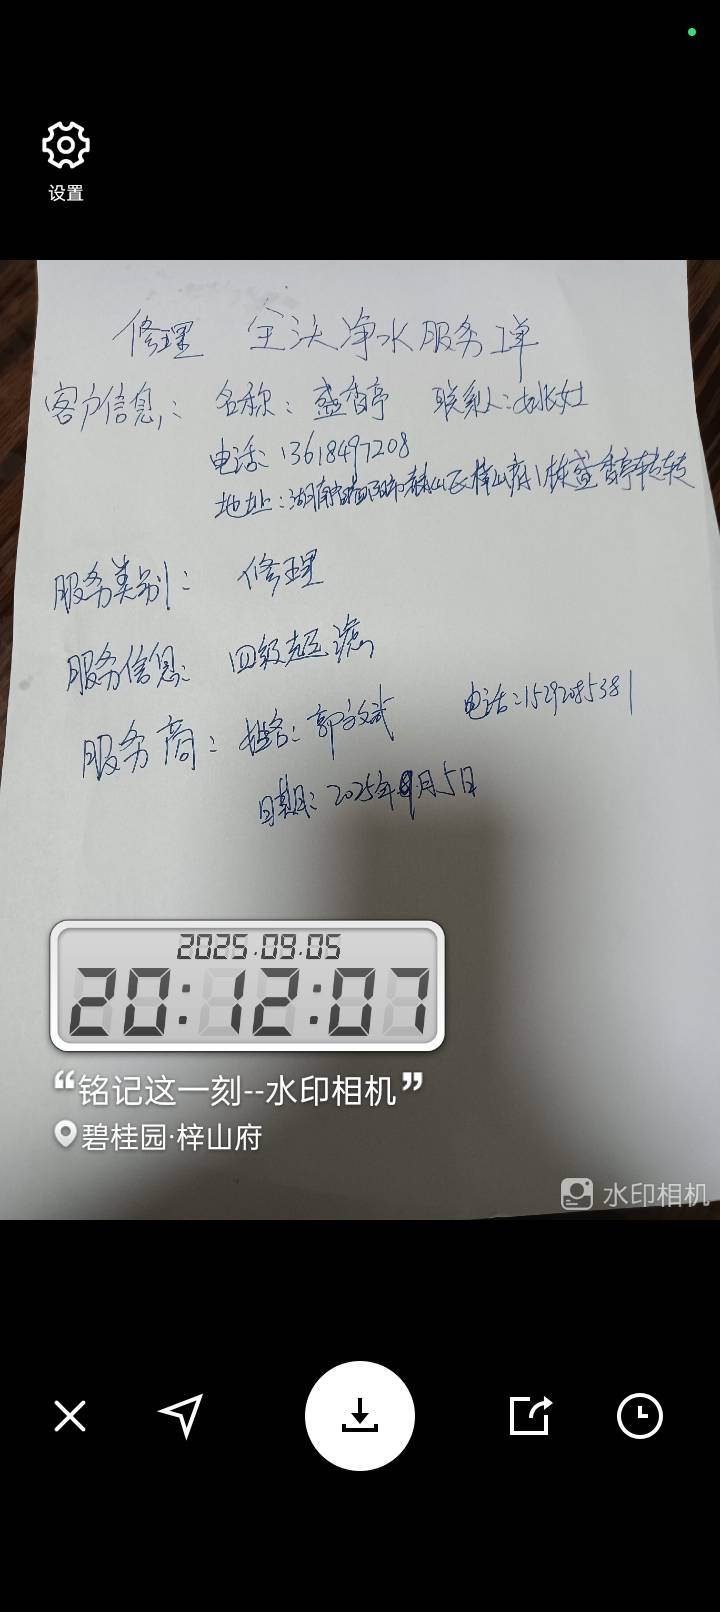 设置
修理 全 净水服务单
客户信息: 名称:盛香亭 联系人:
电话:13618497208
地址:湖南 赫山区梓山府1栋盛香亭转转
服务类别: 修理
服务信息: 四级超滤
服务商: 姓名:郭 武 电话:15292085381
日期:2025年9月5日
2025.09.05
20:12:07
“铭记这一刻--水印相机”
碧桂园·梓山府
水印相机